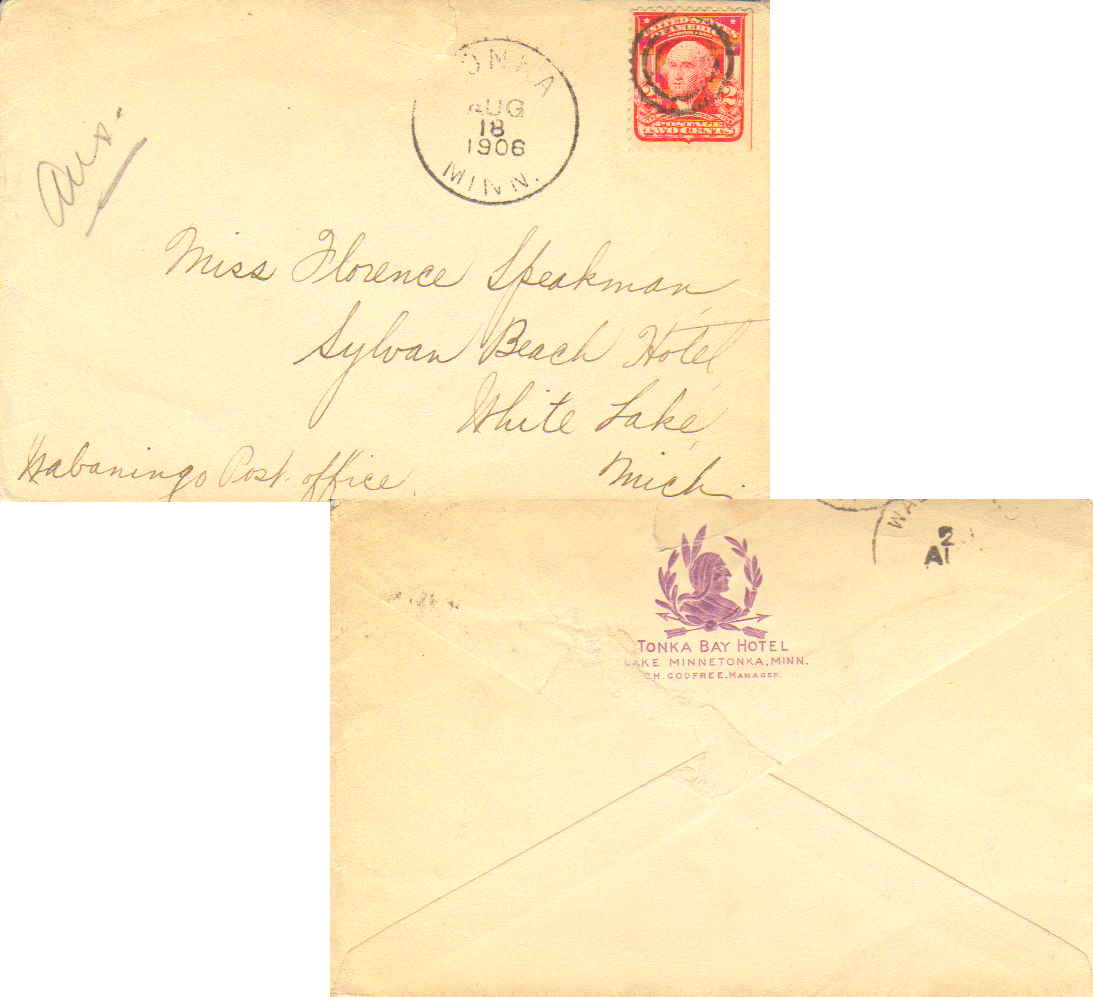 ONKA
AUG
18
1906
MINN.
UNITED STATES
OF AMERICA
2 2
POSTAGE
TWO CENTS
Ans.
Miss Florence Speakman,
Sylvan Beach Hotel,
White Lake,
Mich.
Wabaningo Post office.
WA
2
A
TONKA BAY HOTEL
LAKE MINNETONKA, MINN.
C.H. GODFREE, MANAGER.